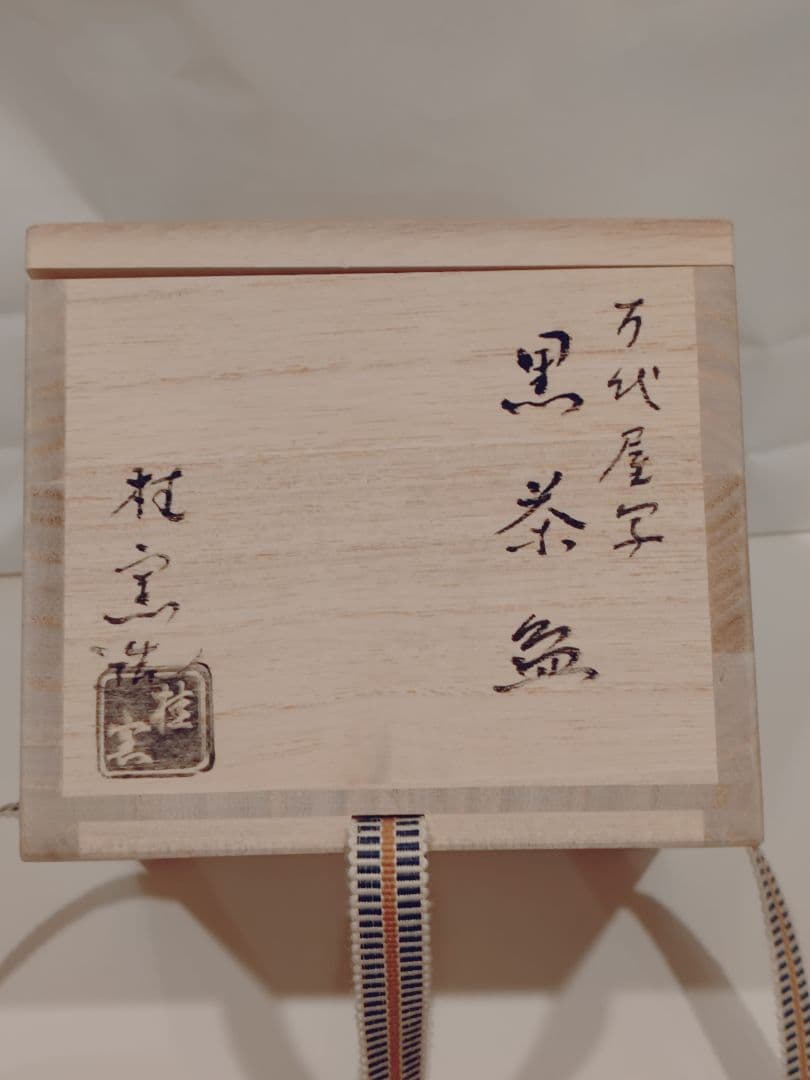 万代屋写
黒茶盌
桂窯造
桂窯